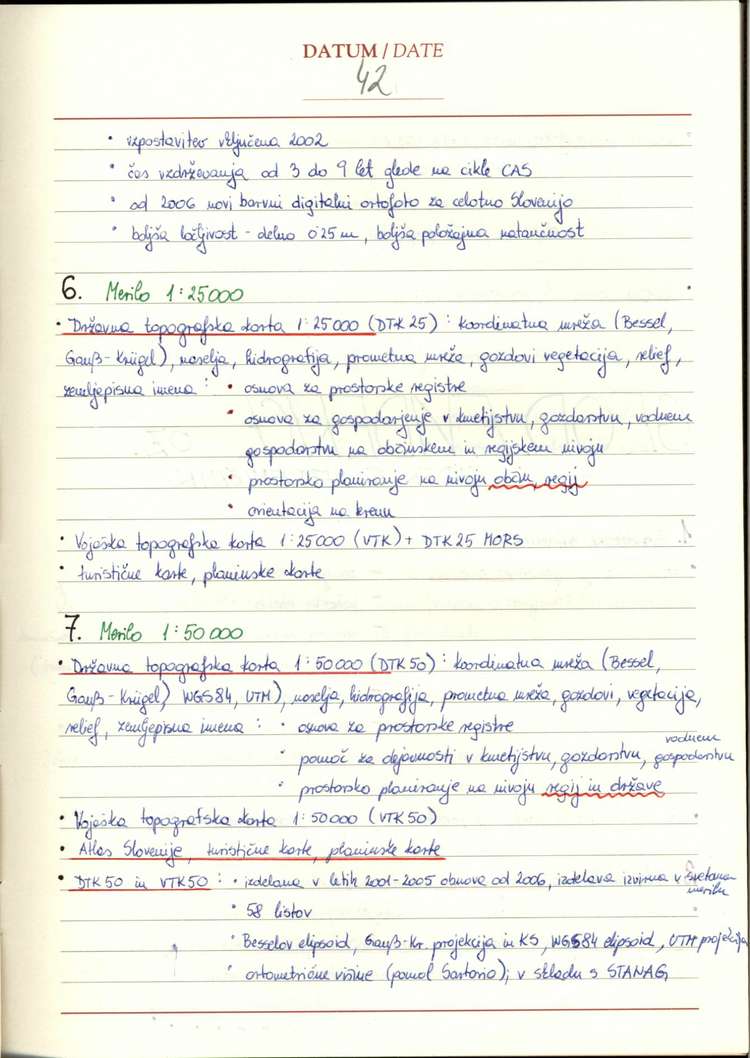 DATUM / DATE
42
• vzpostavitev vključena 2002
• čas vzdrževanja od 3 do 9 let glede na cikle CAS
• od 2006 novi barvni digitalni ortofoto za celotno Slovenijo
• boljša ločljivost - delno 0'25 m, boljša položajna natančnost
6. Merilo 1:25000
• Državna topografska karta 1:25000 (DTK 25) : koordinatna mreža (Bessel,
Gauß-Krügel), naselja, hidrografija, prometna mreža, gozdovi vegetacija, relief,
zemljepisna imena : • osnova za prostorske registre
• osnova za gospodarjenje v kmetijstvu, gozdarstvu, vodnem
gospodarstvu na občinskem in regijskem nivoju
• prostorsko planiranje na nivoju občin, regij
• orientacija na krenu
• Vojaška topografska karta 1:25000 (VTK) + DTK 25 MORS
• turistične karte, planinske karte
7. Merilo 1:50 000
• Državna topografska karta 1:50000 (DTK 50) : koordinatna mreža (Bessel,
Gauß-Krügel) WGS84, UTM), naselja, hidrografija, prometna mreža, gozdovi, vegetacija,
relief, zemljepisna imena : • osnova za prostorske registre
• pomoč za dejavnosti v kmetijstvu, gozdarstvu, vodnem gospodarstvu
• prostorsko planiranje na nivoju regij in države
• Vojaška topografska karta 1:50000 (VTK 50)
• Atlas Slovenije, turistične karte, planinske karte
• DTK 50 in VTK 50 : • izdelana v letih 2001-2005 obnova od 2006, izdelava izvirna v merilu
• 58 listov
• Besselov elipsoid, Gauß-Kr. projekcija in KS, WGS84 elipsoid, UTM projekcija
• ortometrične višine (pomol Sartorio); v skladu s STANAG